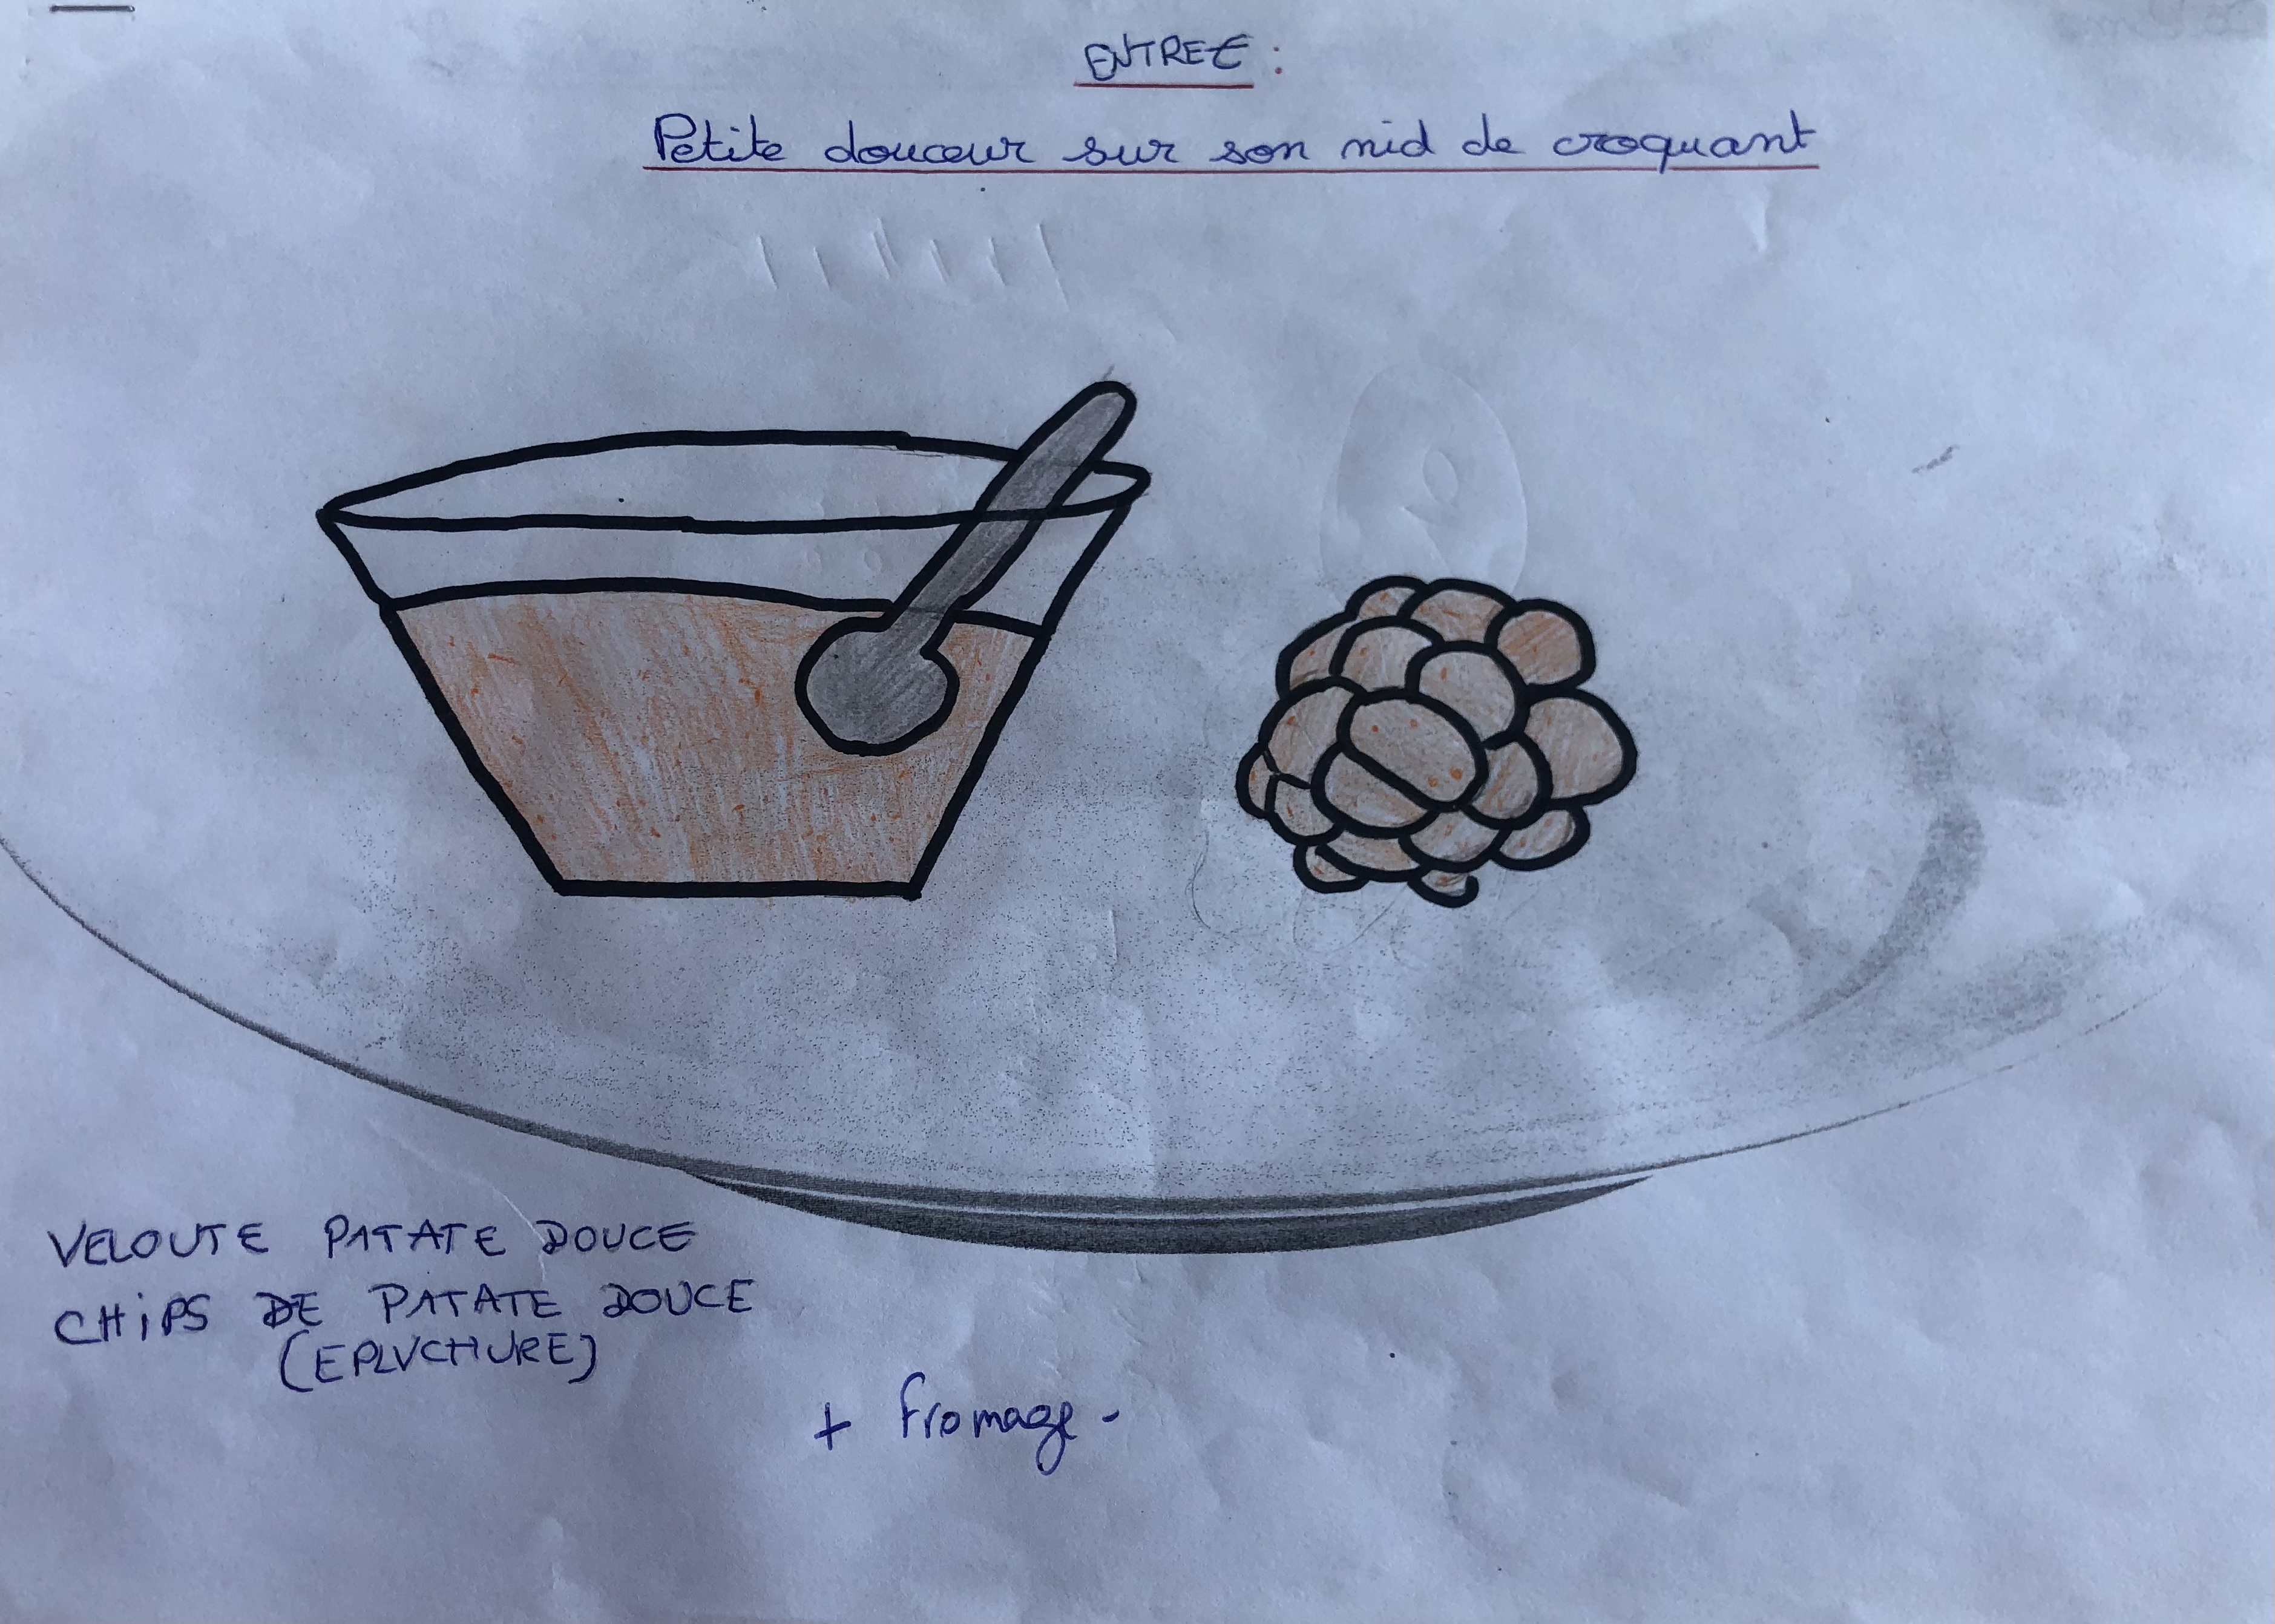 ENTREE :
Petite douceur sur son nid de croquant
VELOUTE PATATE DOUCE
CHiPS DE PATATE DOUCE
(EPLUCHURE)
+ fromage -